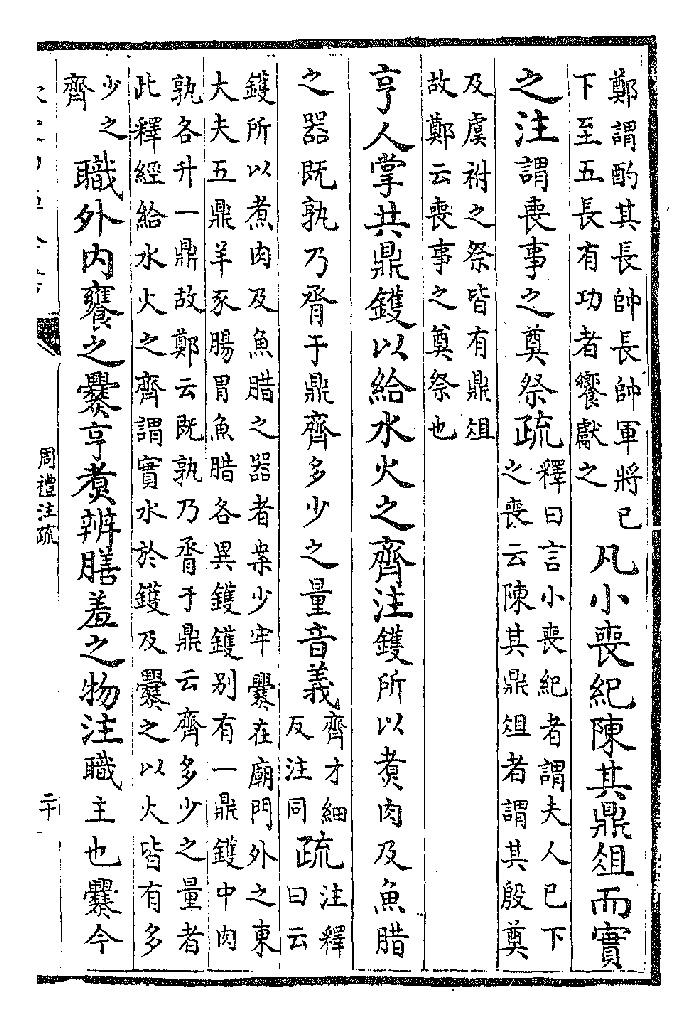 鄭謂酌其長帥長帥軍將已
下至五長有功者饗獻之
凡小喪紀陳其鼎俎而實
之注謂喪事之奠祭疏
釋曰言小喪紀者謂夫人已下
之喪云陳其鼎俎者謂其殷奠
及虞祔之祭皆有鼎俎
故鄭云喪事之奠祭也
亨人掌共鼎鑊以給水火之齊注鑊所以煮肉及魚腊
之器既孰乃脀于鼎齊多少之量音義
齊才細
反注同
疏
注釋
曰云
鑊所以煮肉及魚腊之器者案少牢爨在廟門外之東
大夫五鼎羊豕腸胃魚腊各異鑊鑊别有一鼎鑊中肉
孰各升一鼎故鄭云既孰乃脀于鼎云齊多少之量者
此釋經給水火之齊謂實水於鑊及爨之以火皆有多
少之
齊
職外内饔之爨亨煮辨膳羞之物注職主也爨今
周禮注疏
二十